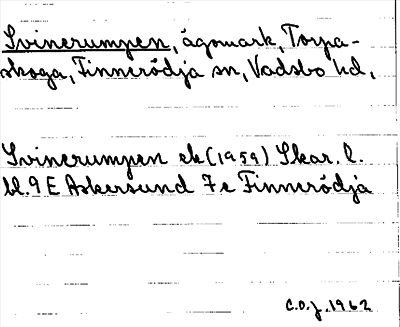 Svinerumpen, ägomark, Torpa-
skoga, Finnerödja sn, Vadsbo hd,
Svinerumpen ek (1959) Skar. l.
bl. 9 E Askersund 7 e Finnerödja
C.O.J. 1962